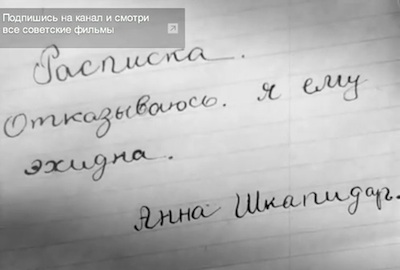 Подпишись на канал и смотри
все советские фильмы
Расписка.
Отказываюсь. я ему
эхидна.
Янна Шкапидар.